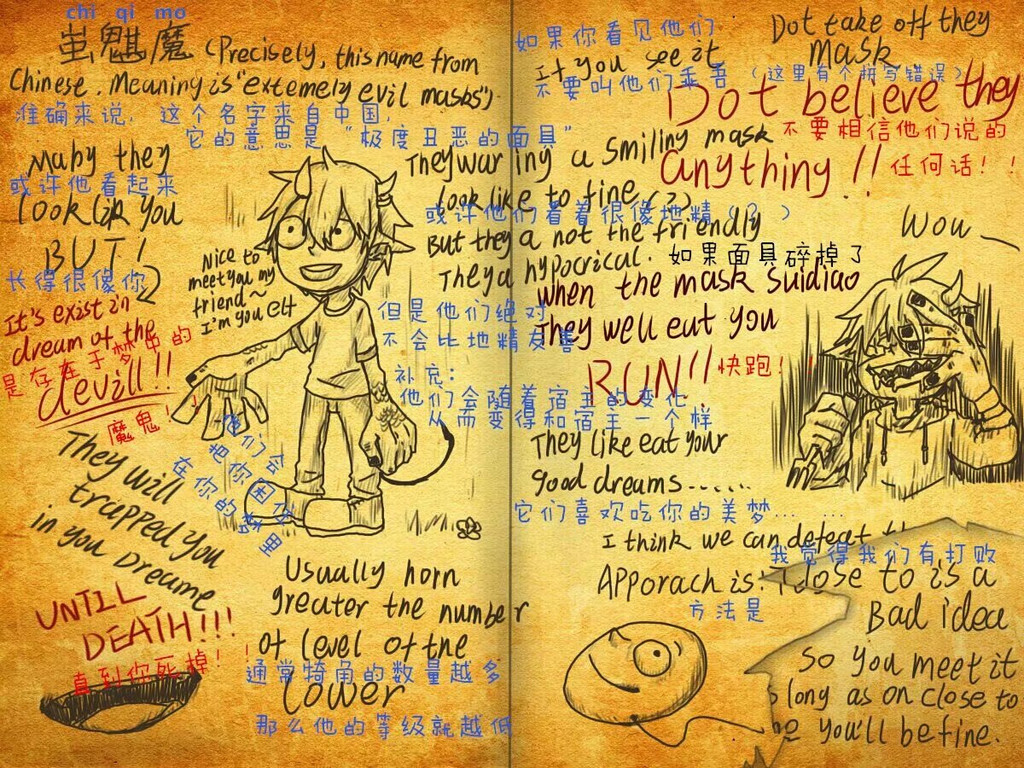 chi qi mo
蚩魌魔 (Precisely, this name from
Chinese. Meaning is "extemely evil masks")
准确来说，这个名字来自中国，
它的意思是“极度丑恶的面具”
Maby they
或许他看起来
look lik you
BUT!
长得很像你
It's exist in
dream of the
是存在于梦里的
devil!!
魔鬼！！
Nice to
meet you my
friend~
I'm you elf
They will
trapped you
in you Dreame
它们会
把你困住
在你的梦里
UNTIL
DEATH!!!
直到你死掉！！
Usually horn
greater the number
of level of the
通常犄角的数量越多
lower
那么他的等级就越低
They war ing a smiling mask
look like to fine (?)
或许他们看着很像地精（？）
But they a not the friendly
They a hypocrical.
但是他们绝对
不会比地精友善
补充：
他们会随着宿主的变化
从而变得和宿主一个样
如果你看见他们
If you see it
不要叫他们乖吾
（这里有个拼写错误）
Dot take off they
mask
Dot believe they
不要相信他们说的
anything!!
任何话！！
如果面具碎掉了
when the mask suidiao
They well eat you
RUN!!
快跑！！
Wou
They like eat your
good dreams......
它们喜欢吃你的美梦... ...
I think we can defeat
我觉得我们有打败
Apporach is:
方法是
close to is a
Bad idea
so you meet it
long as on close to
you'll be fine.